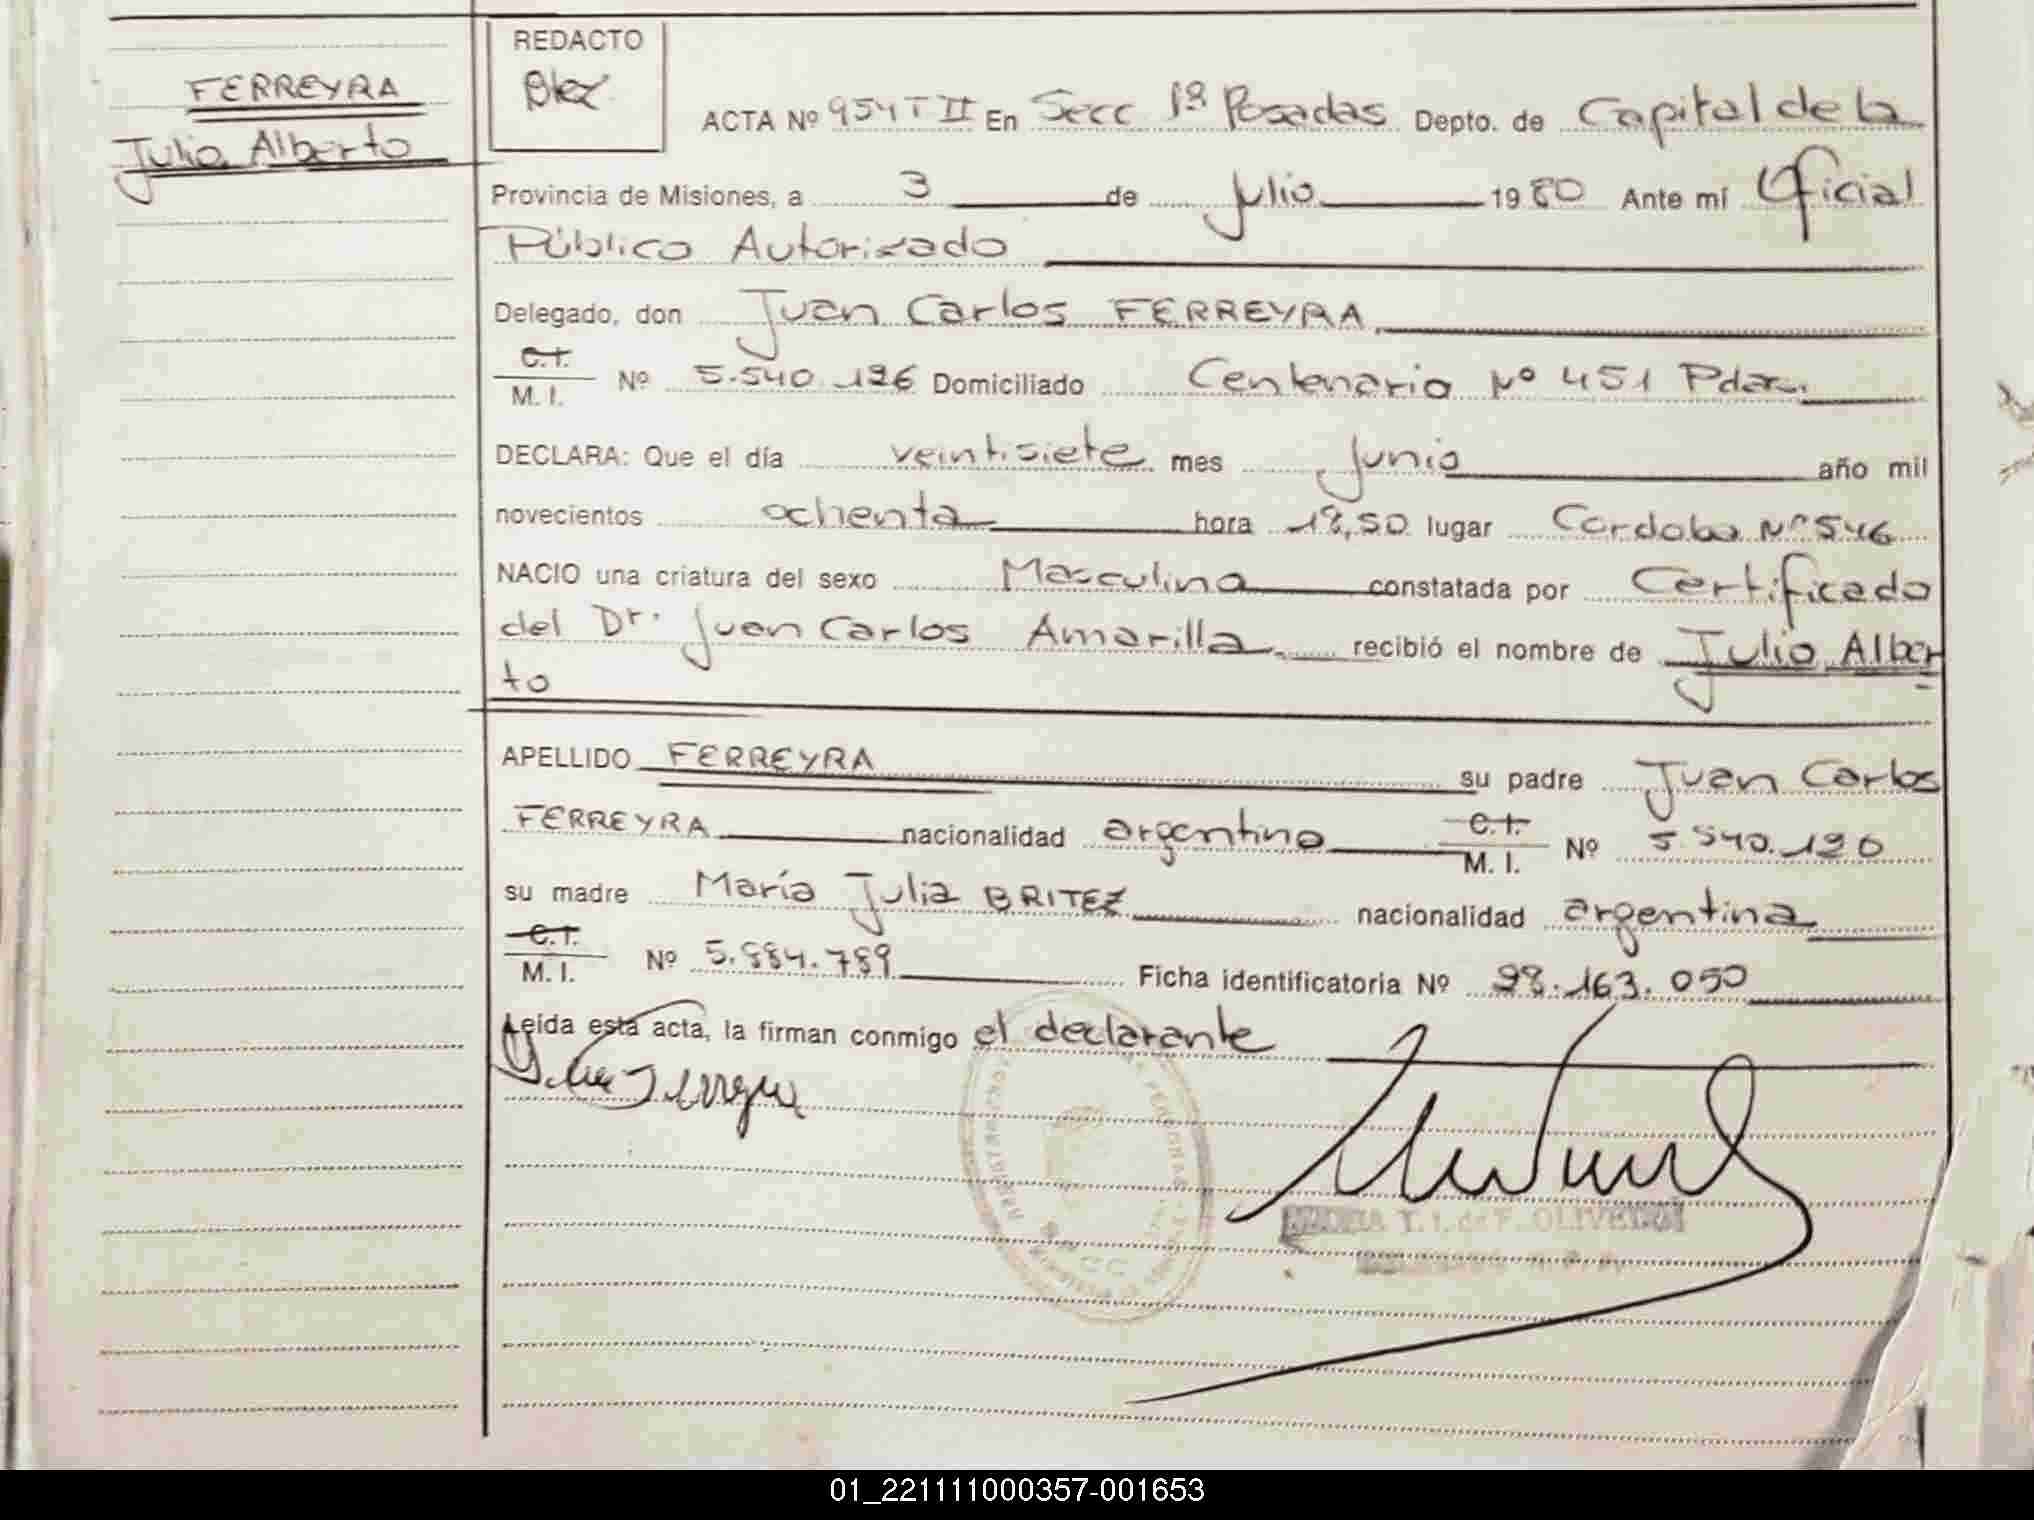 REDACTO
FERREYRA
Julio Alberto
ACTA Nº 954 T II En Secc 1ª Posadas Depto. de Capital de la
Provincia de Misiones, a 3 de Julio 1980 Ante mí Oficial
Público Autorizado
Delegado, don Juan Carlos FERREYRA
C.I.
M. I. Nº 5.540.126 Domiciliado Centenario Nº 451 Pdas.
DECLARA: Que el día veintisiete mes Junio año mil
novecientos ochenta hora lugar Cordoba Nº 546
NACIO una criatura del sexo Masculino constatada por Certificado
del Dr. Juan Carlos Amarilla recibió el nombre de Julio Alber
to
APELLIDO FERREYRA su padre Juan Carlos
FERREYRA nacionalidad argentino C.I.
M. I. Nº
su madre María Julia BRITEZ nacionalidad argentina
C.I.
M. I. Nº 5.884.789 Ficha identificatoria Nº
Leída esta acta, la firman conmigo el declarante
01_221111000357-001653